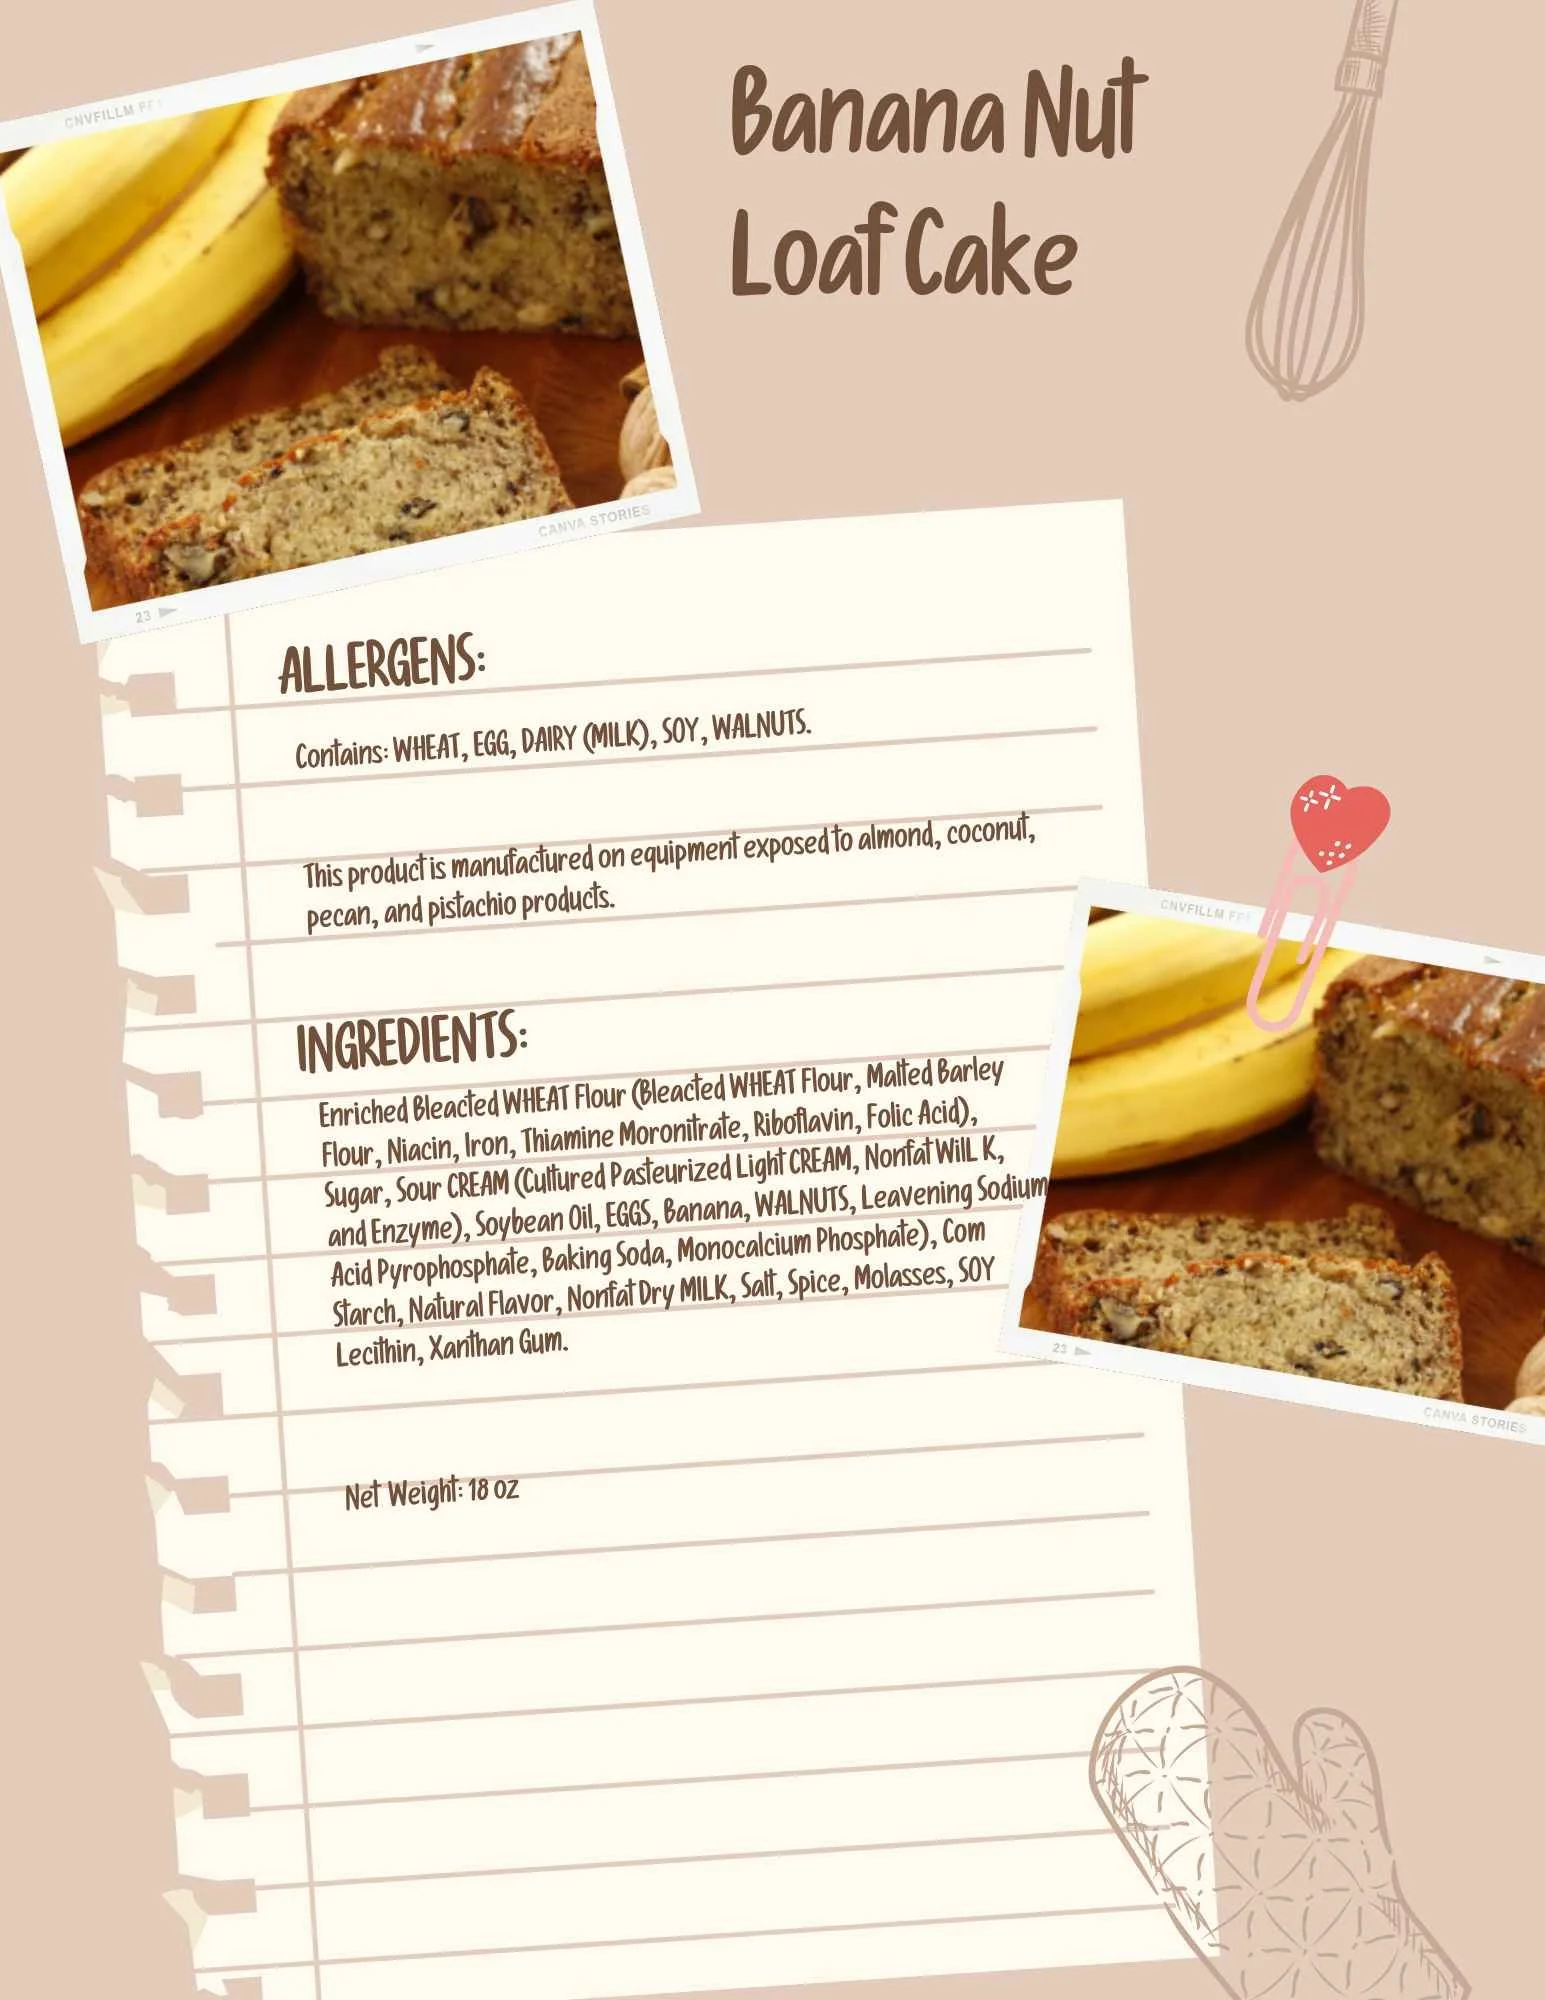 CNVFILLM FF
Banana Nut
Loaf Cake
CANVA STORIES
23
ALLERGENS:
Contains: WHEAT, EGG, DAIRY (MILK), SOY, WALNUTS.
This product is manufactured on equipment exposed to almond, coconut,
pecan, and pistachio products.
CNVFILLM FF
INGREDIENTS:
Enriched Bleacted WHEAT Flour (Bleacted WHEAT Flour, Malted Barley
Flour, Niacin, Iron, Thiamine Moronitrate, Riboflavin, Folic Acid),
Sugar, Sour CREAM (Cultured Pasteurized Light CREAM, Nonfat WilL K,
and Enzyme), Soybean Oil, EGGS, Banana, WALNUTS, Leavening Sodium
Acid Pyrophosphate, Baking Soda, Monocalcium Phosphate), Com
Starch, Natural Flavor, Nonfat Dry MILK, Salt, Spice, Molasses, SOY
Lecithin, Xanthan Gum.
23
CANVA STORIES
Net Weight: 18 oz